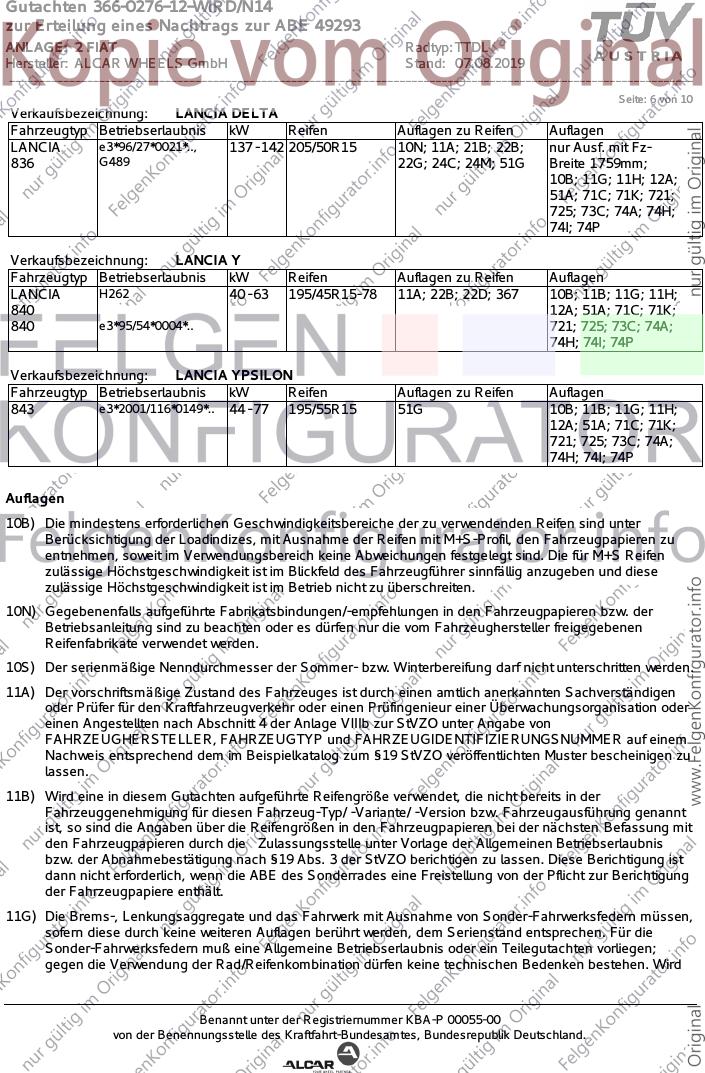 Gutachten 366-0276-12-WIRD/N14
zur Erteilung eines Nachtrags zur ABE 49293
ANLAGE: 2 FIAT Radtyp: TTDL
Hersteller: ALCAR WHEELS GmbH Stand: 07.08.2019
TÜV
AUSTRIA
Kopie vom Original
Seite: 6 von 10
Verkaufsbezeichnung: LANCIA DELTA
Fahrzeugtyp Betriebserlaubnis kW Reifen Auflagen zu Reifen Auflagen
LANCIA e3*96/27*0021*.., 137-142 205/50R15 10N; 11A; 21B; 22B; nur Ausf. mit Fz-
836 G489 22G; 24C; 24M; 51G Breite 1759mm;
10B; 11G; 11H; 12A;
51A; 71C; 71K; 721;
725; 73C; 74A; 74H;
74I; 74P
Verkaufsbezeichnung: LANCIA Y
Fahrzeugtyp Betriebserlaubnis kW Reifen Auflagen zu Reifen Auflagen
LANCIA H262 40-63 195/45R15-78 11A; 22B; 22D; 367 10B; 11B; 11G; 11H;
840 12A; 51A; 71C; 71K;
840 e3*95/54*0004*.. 721; 725; 73C; 74A;
74H; 74I; 74P
Verkaufsbezeichnung: LANCIA YPSILON
Fahrzeugtyp Betriebserlaubnis kW Reifen Auflagen zu Reifen Auflagen
843 e3*2001/116*0149*.. 44-77 195/55R15 51G 10B; 11B; 11G; 11H;
12A; 51A; 71C; 71K;
721; 725; 73C; 74A;
74H; 74I; 74P
FELGEN
KONFIGURATOR
FelgenKonfigurator.info
Auflagen
10B) Die mindestens erforderlichen Geschwindigkeitsbereiche der zu verwendenden Reifen sind unter
Berücksichtigung der Loadindizes, mit Ausnahme der Reifen mit M+S-Profil, den Fahrzeugpapieren zu
entnehmen, soweit im Verwendungsbereich keine Abweichungen festgelegt sind. Die für M+S Reifen
zulässige Höchstgeschwindigkeit ist im Blickfeld des Fahrzeugführer sinnfällig anzugeben und diese
zulässige Höchstgeschwindigkeit ist im Betrieb nicht zu überschreiten.
10N) Gegebenenfalls aufgeführte Fabrikatsbindungen/-empfehlungen in den Fahrzeugpapieren bzw. der
Betriebsanleitung sind zu beachten oder es dürfen nur die vom Fahrzeughersteller freigegebenen
Reifenfabrikate verwendet werden.
10S) Der serienmäßige Nenndurchmesser der Sommer- bzw. Winterbereifung darf nicht unterschritten werden.
11A) Der vorschriftsmäßige Zustand des Fahrzeuges ist durch einen amtlich anerkannten Sachverständigen
oder Prüfer für den Kraftfahrzeugverkehr oder einen Prüfingenieur einer Überwachungsorganisation oder
einen Angestellten nach Abschnitt 4 der Anlage VIIIb zur StVZO unter Angabe von
FAHRZEUGHERSTELLER, FAHRZEUGTYP und FAHRZEUGIDENTIFIZIERUNGSNUMMER auf einem
Nachweis entsprechend dem im Beispielkatalog zum §19 StVZO veröffentlichten Muster bescheinigen zu
lassen.
11B) Wird eine in diesem Gutachten aufgeführte Reifengröße verwendet, die nicht bereits in der
Fahrzeuggenehmigung für diesen Fahrzeug-Typ/ -Variante/ -Version bzw. Fahrzeugausführung genannt
ist, so sind die Angaben über die Reifengrößen in den Fahrzeugpapieren bei der nächsten Befassung mit
den Fahrzeugpapieren durch die Zulassungsstelle unter Vorlage der Allgemeinen Betriebserlaubnis
bzw. der Abnahmebestätigung nach §19 Abs. 3 der StVZO berichtigen zu lassen. Diese Berichtigung ist
dann nicht erforderlich, wenn die ABE des Sonderrades eine Freistellung von der Pflicht zur Berichtigung
der Fahrzeugpapiere enthält.
11G) Die Brems-, Lenkungsaggregate und das Fahrwerk mit Ausnahme von Sonder-Fahrwerksfedern müssen,
sofern diese durch keine weiteren Auflagen berührt werden, dem Serienstand entsprechen. Für die
Sonder-Fahrwerksfedern muß eine Allgemeine Betriebserlaubnis oder ein Teilegutachten vorliegen;
gegen die Verwendung der Rad/Reifenkombination dürfen keine technischen Bedenken bestehen. Wird
Benannt unter der Registriernummer KBA-P 00055-00
von der Benennungsstelle des Kraftfahrt-Bundesamtes, Bundesrepublik Deutschland.
ALCAR
nur gültig im Original
www.FelgenKonfigurator.info
Original